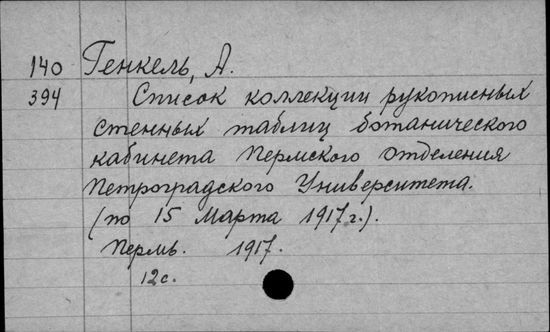 140 Генкель, А.
394 Список коллекции рукописных
стенных таблиц ботанического
кабинета Пермского отделения
Петроградского Университета.
(по 15 Марта 1917 г.).
Пермь. 1917.
12 с.